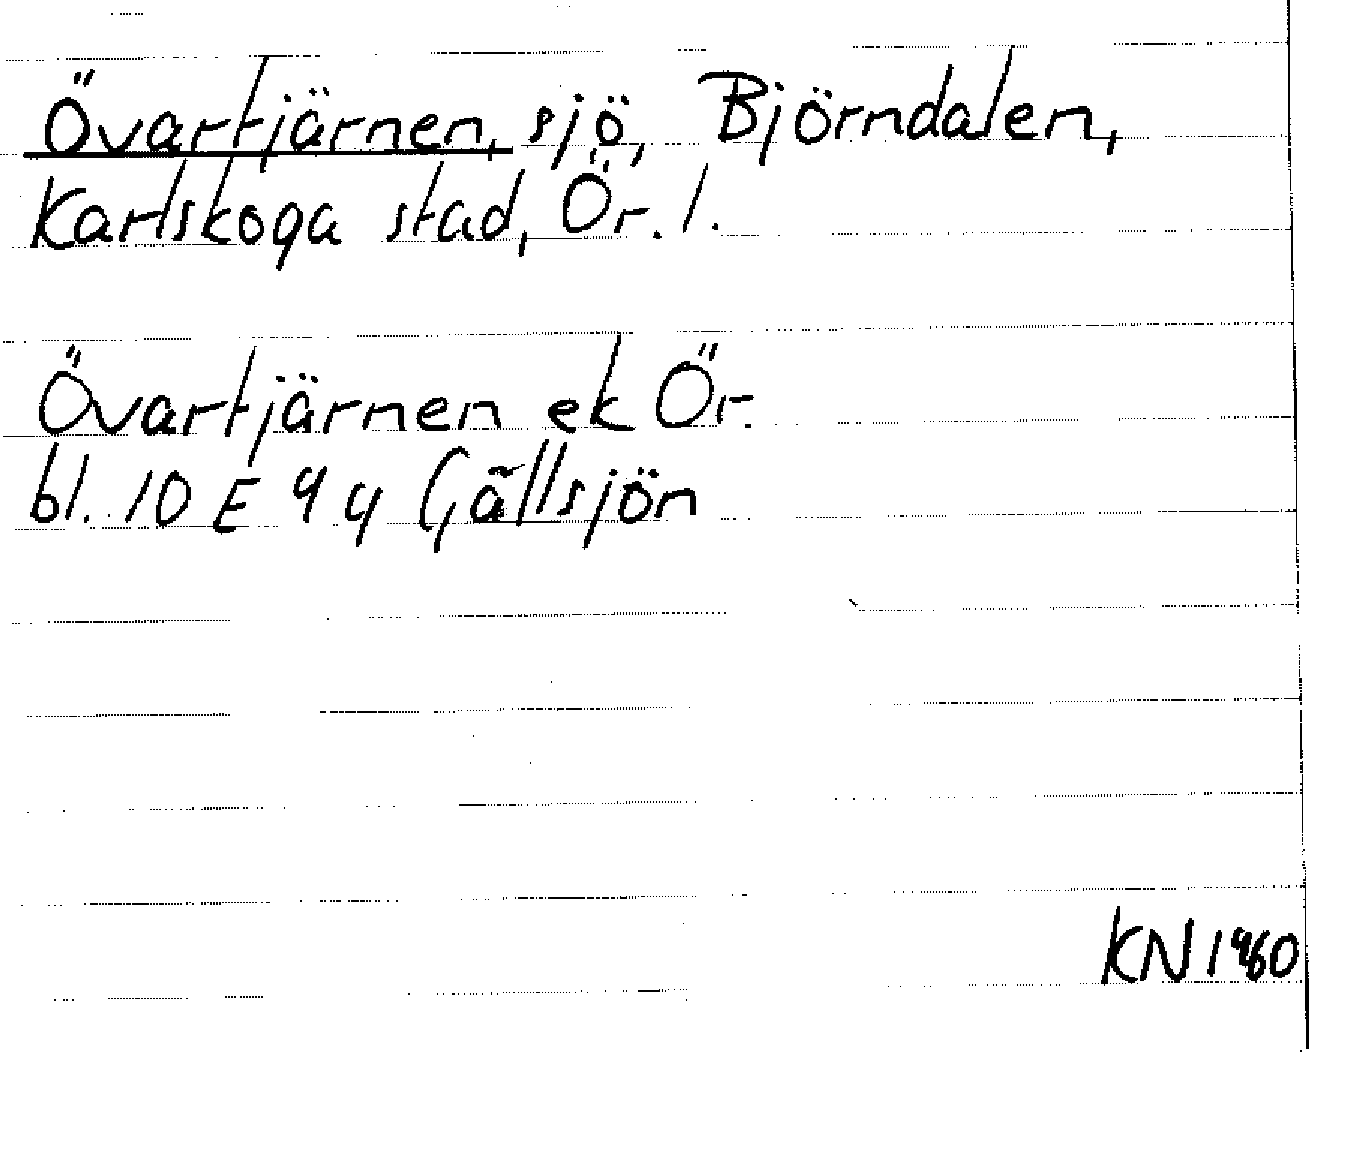 Övartjärnen, sjö, Björndalen,
Karlskoga stad, Ör. l.
Övartjärnen ek Ör.
bl. 10 E 9 y Gällsjön
KN 1960